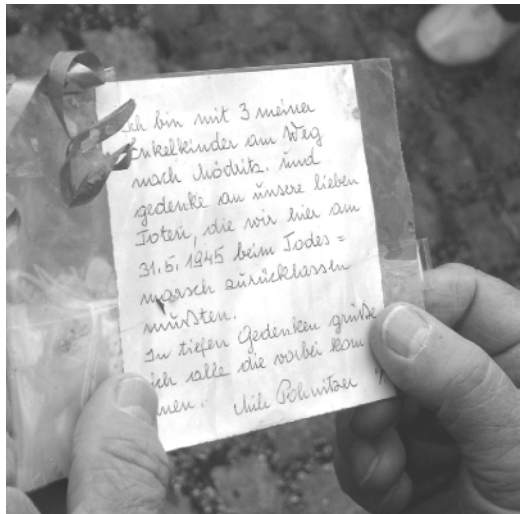 Ich bin mit 3 meiner
Enkelkinder am Weg
nach Mödritz. und
gedenke an unsere lieben
Toten, die wir hier am
31.5.1945 beim Todes=
marsch zurücklassen
mußten.
In tiefen Gedenken grüße
ich alle die vorbei kom
men.